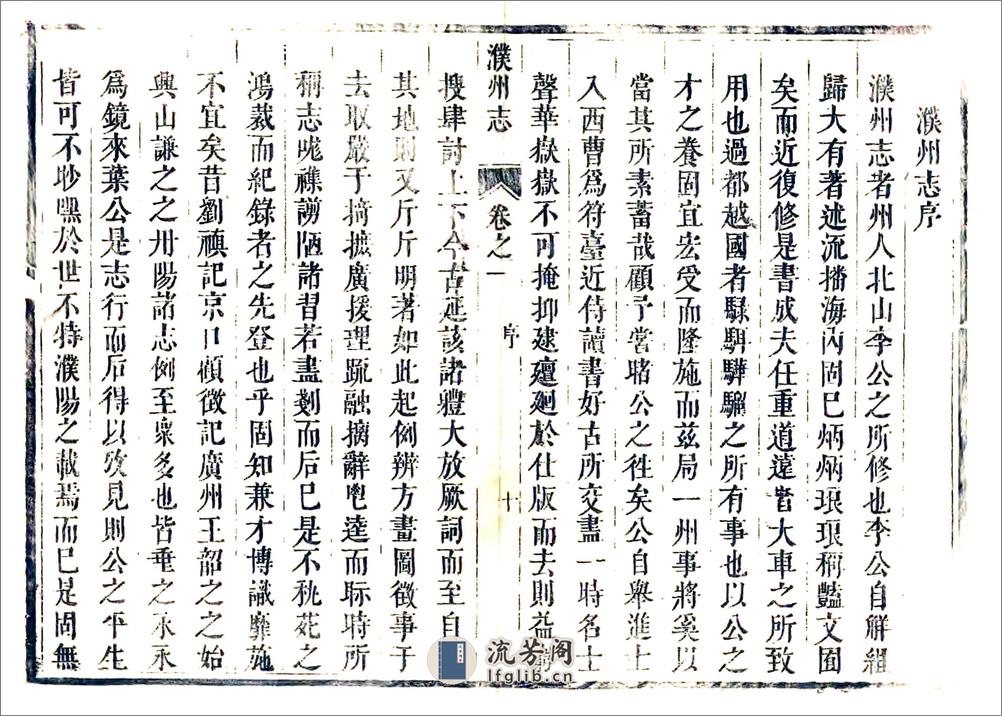 濮州志序
濮州志者州人北山李公之所修也李公自解組
歸大有著述流播海內固巳炳炳琅琅稱豔文囿
矣而近復修是書成夫任重道遠者大車之所致
用也過都越國者騄駬驊騮之所有事也以公之
才之養固宜宏受而隆施而茲局一州事將奚以
當其所素蓄哉顧予嘗睹公之徃矣公自舉進士
入西曹爲符臺近侍讀書好古所交盡一時名士
聲華嶽嶽不可掩抑建邅廻於仕版而去則益
濮州志
卷之一
序
十
搜肆討上下今古延該諸軆大放厥詞而至自
其地則又斤斤明著如此起例辨方畫圖徵事于
去取嚴于掎摭廣援理䟽融摛辭鬯達而眎時所
稱志㫾襍謭陋諸習若盡剗而后巳是不秇苑之
鴻裁而紀錄者之先登也乎固知兼才博識靡施
不宜矣昔劉禎記京口顧徵記廣州王韶之之始
興山謙之之丹陽諸志例至衆多也皆垂之永永
爲鏡來葉公是志行而后得以攷見則公之平生
皆可不眇嘿於世不特濮陽之載焉而巳是固無
流芳阁
lfglib.cn